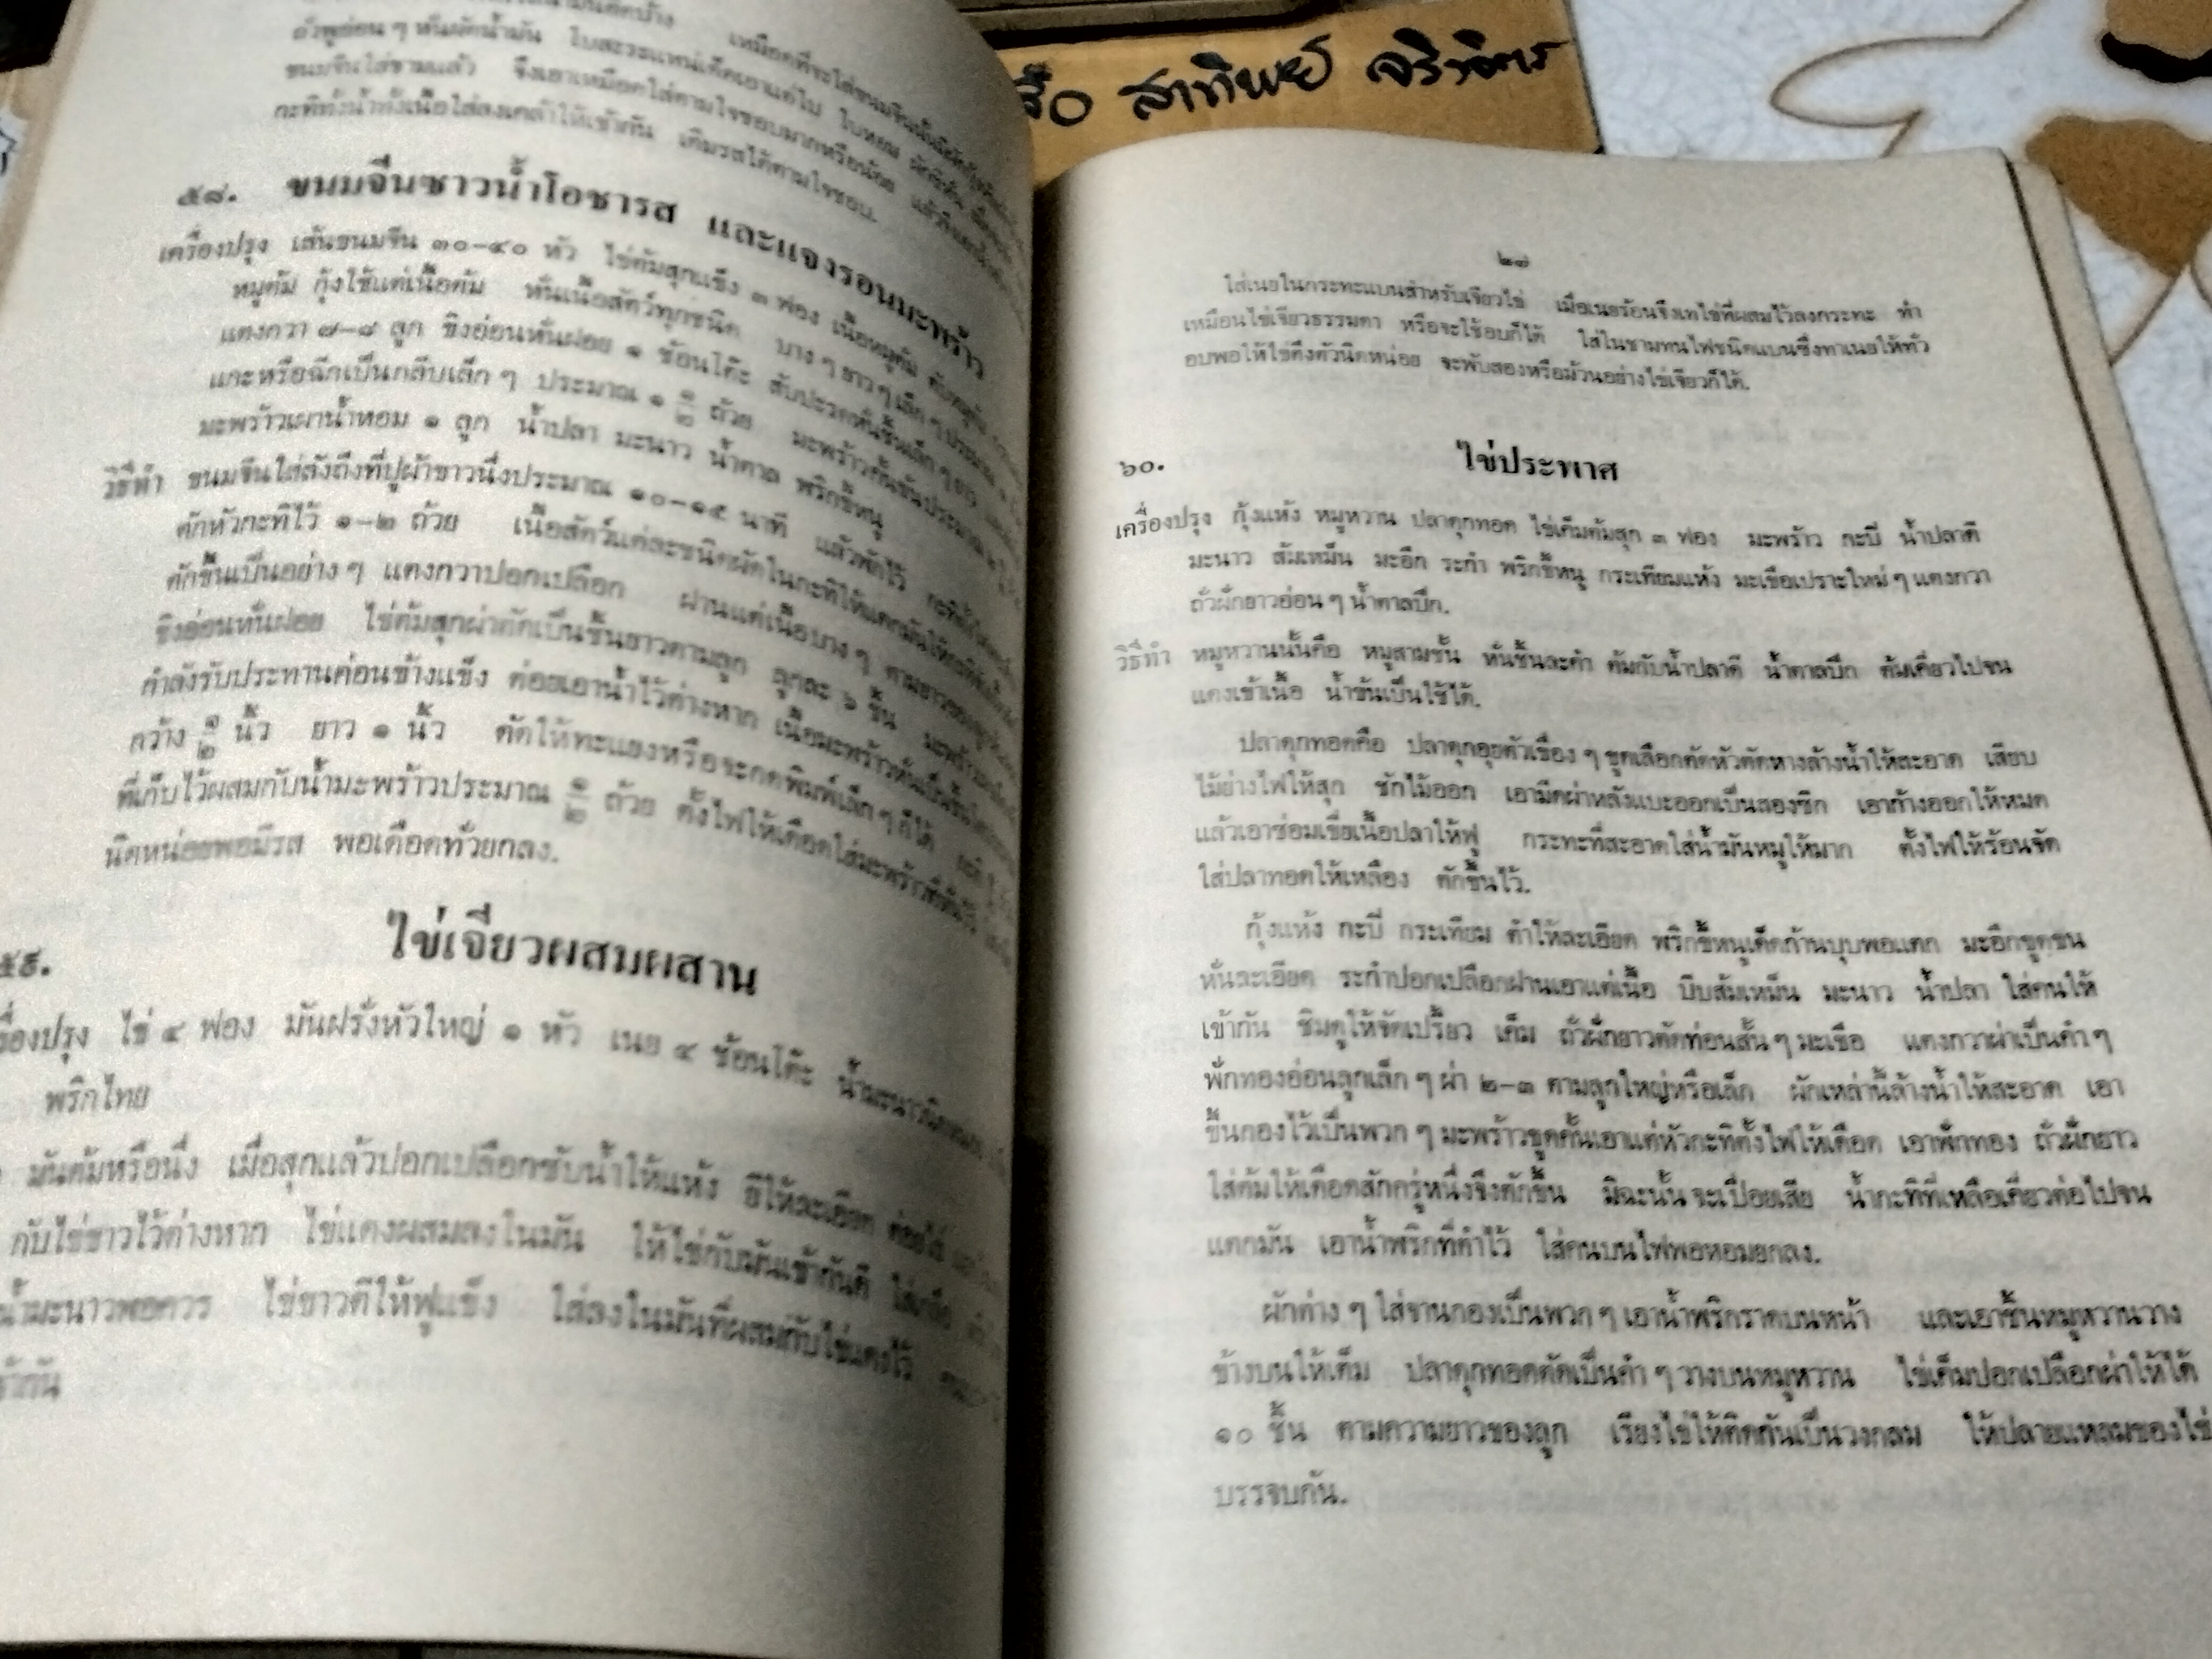 ถั่วพูอ่อน ๆ หั่นผัดน้ำมัน ใบสะระแหน่เด็ดเอาแต่ใบ
ขนมจีนใส่ชามแล้ว จึงเอาเหมือดใส่ตามใจชอบมากหรือน้อย
กะทิทั้งน้ำทั้งเนื้อใส่ลงเคล้าให้เข้ากัน เติมรสได้ตามใจชอบ.
๕๘. ขนมจีนซาวน้ำโอชารส และแจงรอนมะพร้าว
เครื่องปรุง เส้นขนมจีน ๓๐-๔๐ หัว ไข่ต้มสุกแข็ง ๓ ฟอง เนื้อหมูต้ม
หมูต้ม กุ้งใช้แต่เนื้อต้ม หั่นเนื้อสัตว์ทุกชนิด บาง ๆ ยาว ๆ เล็ก ๆ
แตงกวา ๗-๘ ลูก ขิงอ่อนหั่นฝอย ๑ ช้อนโต๊ะ สับปะรดหั่นชิ้นเล็ก ๆ
แกะหรือฉีกเป็นกลีบเล็ก ๆ ประมาณ ๑ ๑/๒ ถ้วย มะพร้าวคั้นข้นประมาณ
มะพร้าวเผาน้ำหอม ๑ ลูก น้ำปลา มะนาว น้ำตาล พริกขี้หนู
วิธีทำ ขนมจีนใส่ลังถึงที่ปูผ้าขาวนึ่งประมาณ ๑๐-๑๕ นาที แล้วพักไว้
ตักหัวกะทิไว้ ๑-๒ ถ้วย เนื้อสัตว์แต่ละชนิดผัดในกะทิให้แตกมัน
ตักขึ้นเป็นอย่าง ๆ แตงกวาปอกเปลือก ฝานแต่เนื้อบาง ๆ
ขิงอ่อนหั่นฝอย ไข่ต้มสุกผ่าตัดเป็นชิ้นยาวตามลูก ลูกละ ๖ ชิ้น
กำลังรับประทานค่อนข้างแข็ง ค่อยเอาน้ำไว้ต่างหาก เนื้อมะพร้าวหั่นเป็นชิ้น
กว้าง ๑/๒ นิ้ว ยาว ๑ นิ้ว ตัดให้ทะแยงหรือจะกดพิมพ์เล็ก ๆ ก็ได้
ที่เก็บไว้ผสมกับน้ำมะพร้าวประมาณ ๑/๒ ถ้วย ตั้งไฟให้เดือดใส่มะพร้าวที่หั่นไว้
นิดหน่อยพอมีรส พอเดือดทั่วยกลง.
๕๙. ไข่เจียวผสมผสาน
ไข่ ๔ ฟอง มันฝรั่งหัวใหญ่ ๑ หัว เนย ๔ ช้อนโต๊ะ
พริกไทย
มันต้มหรือนึ่ง เมื่อสุกแล้วปอกเปลือกซับน้ำให้แห้ง ยีให้ละเอียด
กับไข่ขาวไว้ต่างหาก ไข่แดงผสมลงในมัน ให้ไข่กับมันเข้ากันดี
น้ำมะนาวพอควร ไข่ขาวตีให้ฟูแข็ง ใส่ลงในมันที่ผสมกับไข่แดงไว้
สาทิพย์ จริงจิตร
๒๗
ใส่เนยในกระทะแบนสำหรับเจียวไข่ เมื่อเนยร้อนจึงเทไข่ที่ผสมไว้ลงกระทะ ทำ
เหมือนไข่เจียวธรรมดา หรือจะใช้อบก็ได้ ใส่ในชามทนไฟชนิดแบนซึ่งทาเนยให้ทั่ว
อบพอให้ไข่ตึงตัวนิดหน่อย จะพับสองหรือม้วนอย่างไข่เจียวก็ได้.
๖๐. ไข่ประพาศ
เครื่องปรุง กุ้งแห้ง หมูหวาน ปลาดุกทอด ไข่เค็มต้มสุก ๓ ฟอง มะพร้าว กะปิ น้ำปลาดี
มะนาว ส้มเหม็น มะอึก ระกำ พริกขี้หนู กระเทียมแห้ง มะเขือเปราะใหม่ ๆ แตงกวา
ถั่วฝักยาวอ่อน ๆ น้ำตาลปึก.
วิธีทำ หมูหวานนั้นคือ หมูสามชั้น หั่นชิ้นละคำ ต้มกับน้ำปลาดี น้ำตาลปึก ต้มเคี่ยวไปจน
แดงเข้าเนื้อ น้ำข้นเป็นใช้ได้.
ปลาดุกทอดคือ ปลาดุกอุยตัวเขื่อง ๆ ขูดเลือกตัดหัวตัดหางล้างน้ำให้สะอาด เสียบ
ไม้ย่างไฟให้สุก ชักไม้ออก เอามีดผ่าหลังแบะออกเป็นสองซีก เอาก้างออกให้หมด
แล้วเอาซ่อมเขี่ยเนื้อปลาให้ฟู กระทะที่สะอาดใส่น้ำมันหมูให้มาก ตั้งไฟให้ร้อนจัด
ใส่ปลาทอดให้เหลือง ตักขึ้นไว้.
กุ้งแห้ง กะปิ กระเทียม ตำให้ละเอียด พริกขี้หนูเด็ดก้านบุบพอแตก มะอึกขูดขน
หั่นละเอียด ระกำปอกเปลือกฝานเอาแต่เนื้อ บีบส้มเหม็น มะนาว น้ำปลา ใส่คนให้
เข้ากัน ชิมดูให้จัดเปรี้ยว เค็ม ถั่วฝักยาวตัดท่อนสั้น ๆ มะเขือ แตงกวาผ่าเป็นคำ ๆ
ฟักทองอ่อนลูกเล็ก ๆ ผ่า ๒-๓ ตามลูกใหญ่หรือเล็ก ผักเหล่านี้ล้างน้ำให้สะอาด เอา
ขึ้นกองไว้เป็นพวก ๆ มะพร้าวขูดคั้นเอาแต่หัวกะทิตั้งไฟให้เดือด เอาฟักทอง ถั่วฝักยาว
ใส่ต้มให้เดือดสักครู่หนึ่งจึงตักขึ้น มิฉะนั้นจะเปื่อยเสีย น้ำกะทิที่เหลือเคี่ยวต่อไปจน
แตกมัน เอาน้ำพริกที่ตำไว้ ใส่คนบนไฟพอหอมยกลง.
ผักต่าง ๆ ใส่จานกองเป็นพวก ๆ เอาน้ำพริกราดบนหน้า และเอาชิ้นหมูหวานวาง
ข้างบนให้เต็ม ปลาดุกทอดตัดเป็นคำ ๆ วางบนหมูหวาน ไข่เค็มปอกเปลือกผ่าให้ได้
๑๐ ชิ้น ตามความยาวของลูก เรียงไข่ให้ติดกันเป็นวงกลม ให้ปลายแหลมของไข่
บรรจบกัน.